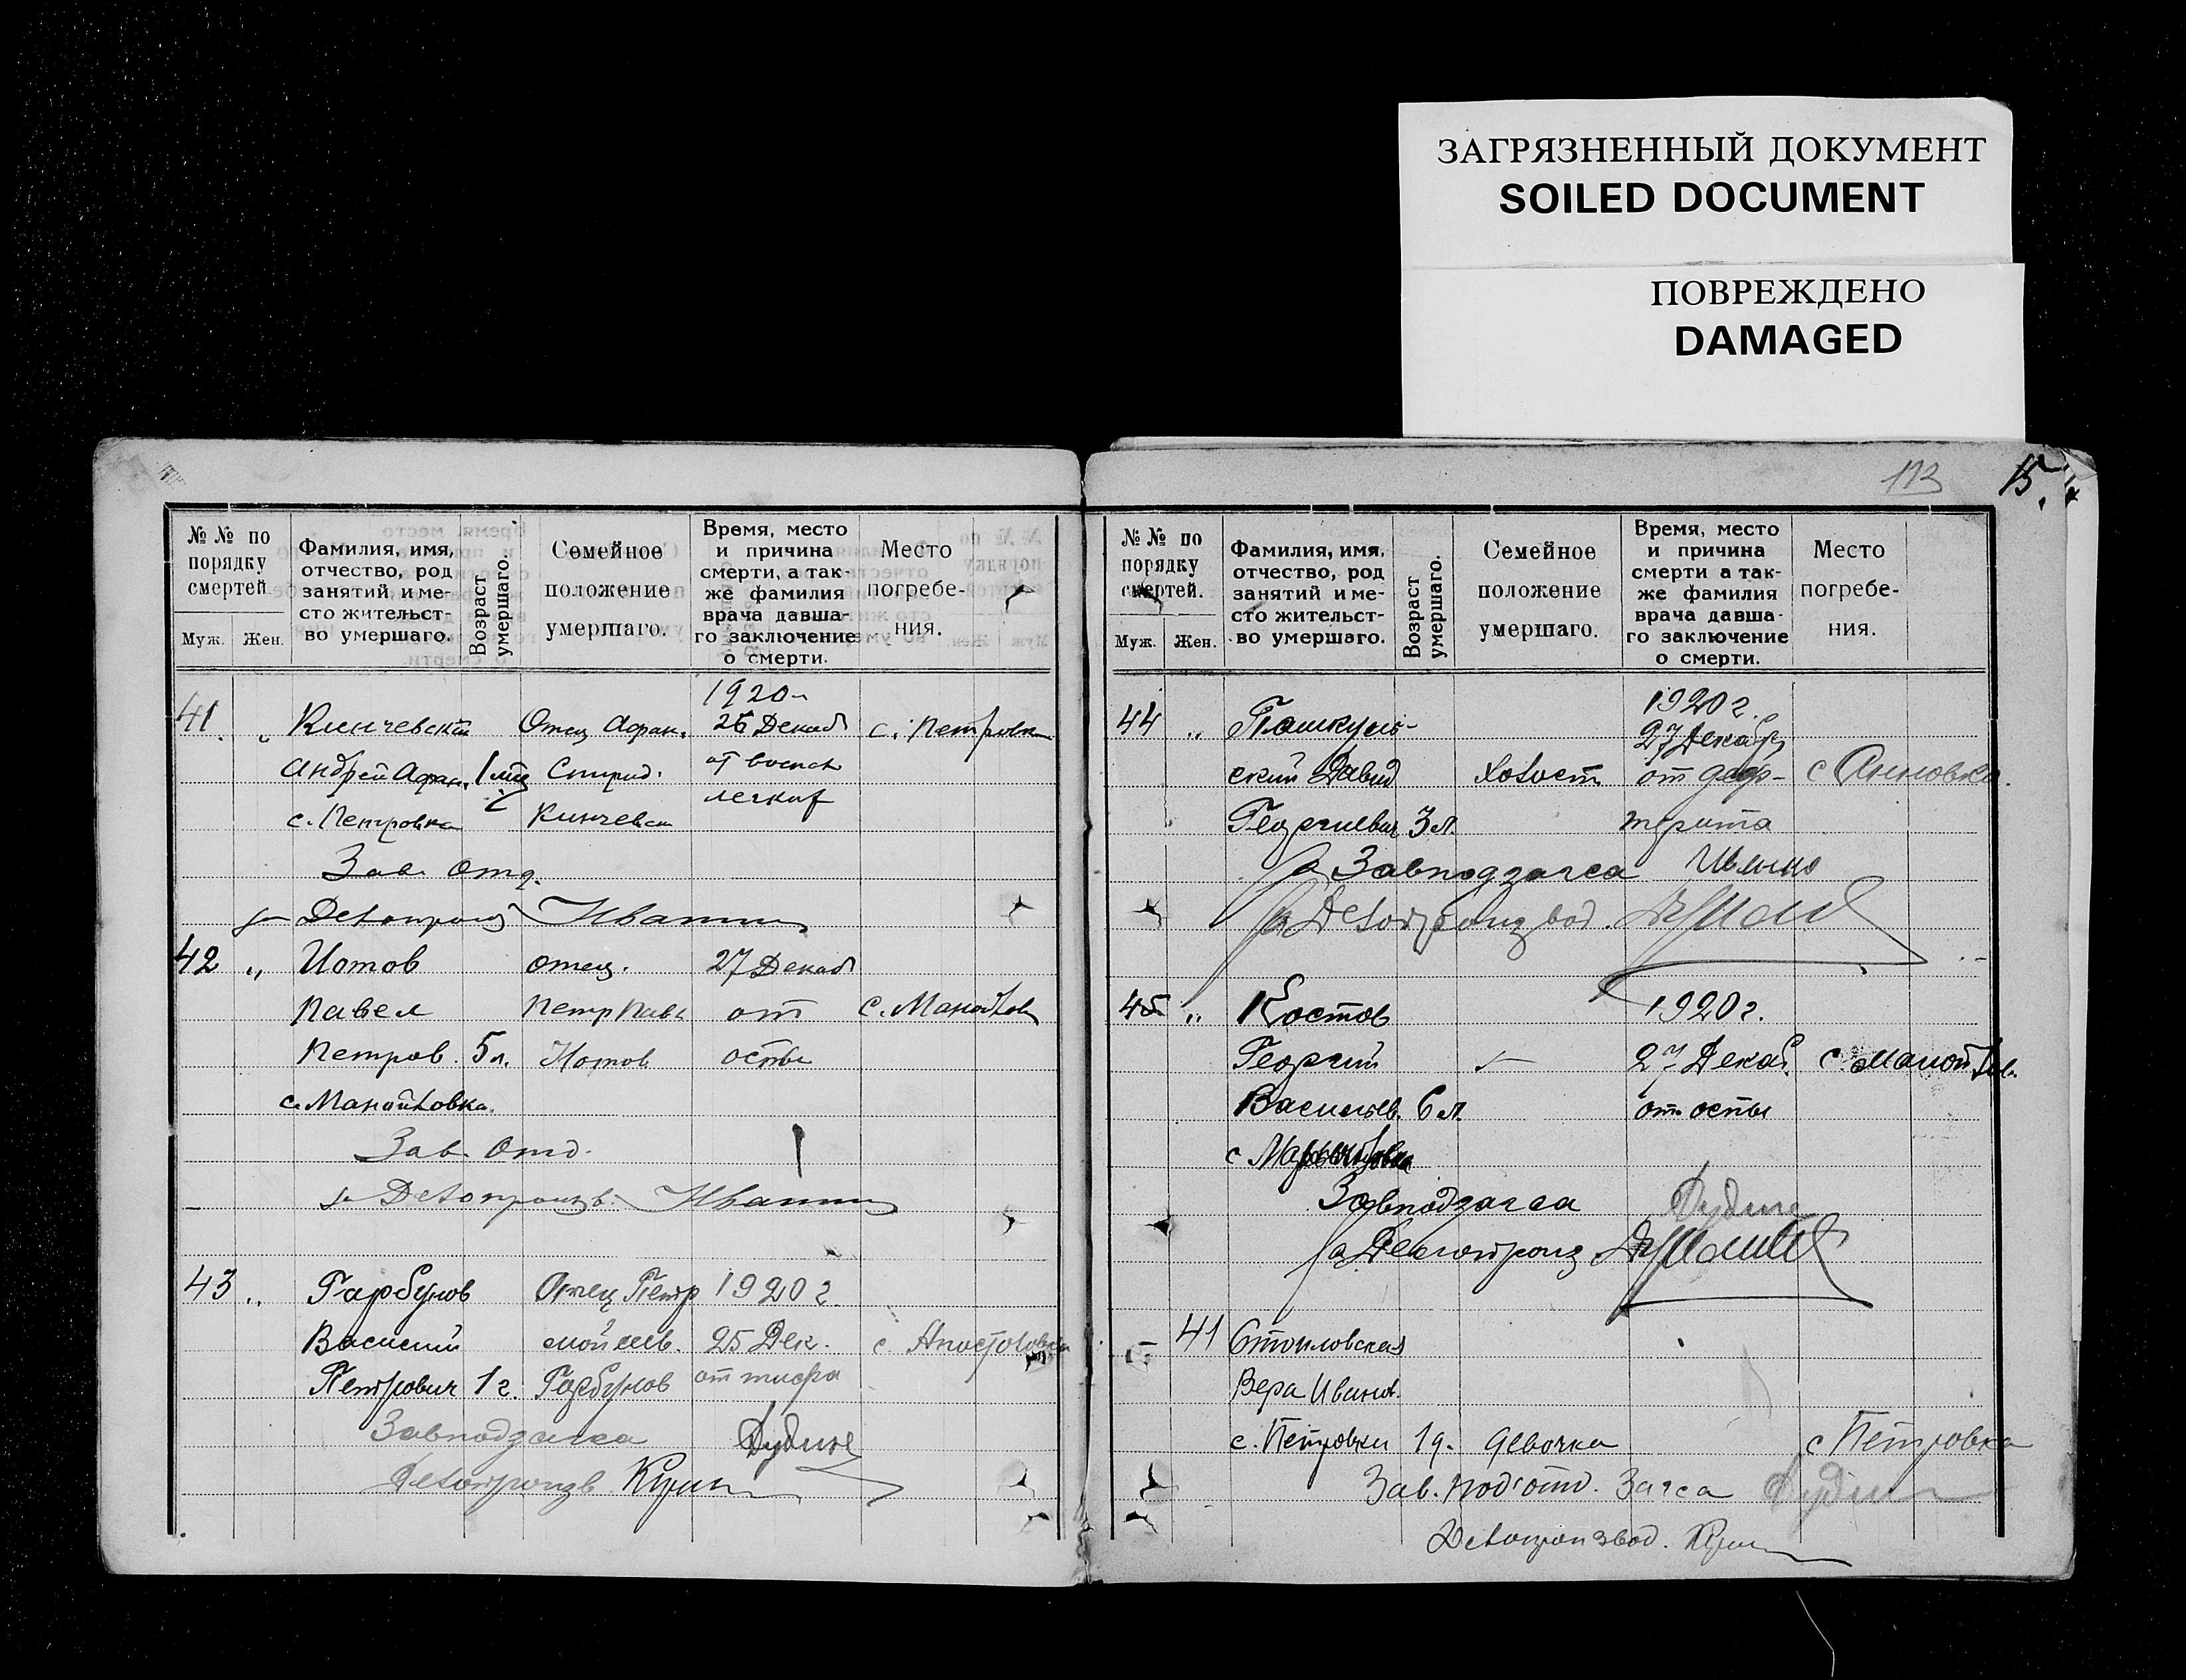 ЗАГРЯЗНЕННЫЙ ДОКУМЕНТ
SOILED DOCUMENT
ПОВРЕЖДЕНО
DAMAGED
113 15
№ № по порядку смертей.
Муж. Жен.
Фамилия, имя, отчество, род занятий и место жительство умершаго.
Возраст умершаго.
Семейное положение умершаго.
Время, место и причина смерти, а также фамилия врача давшаго заключение о смерти.
Место погребения.
1920
41. Кинчевский Отец Афан. 26 Декаб с. Петровка
Андрей Афан. 1 Спирид. от воспал
с. Петровка Кинчевск легких
Зав. Отд.
Делопроизв
42 „ Иотов отец. 27 Декаб
Павел Петр Павл от с. Манойлов
Петров. 5 л. Иотов оспы
с. Манойловка.
Зав. Отд.
Делопроизв.
43 „ Гарбузов Отец Петр 1920 г.
Василий 25 Дек. с.
Петрович 1 г. Гарбузов от тифа
Завподзагса
Делопроизв
№ № по порядку смертей.
Муж. Жен.
Фамилия, имя, отчество, род занятий и место жительство умершаго.
Возраст умершаго.
Семейное положение умершаго.
Время, место и причина смерти а также фамилия врача давшаго заключение о смерти.
Место погребения.
1920 г.
44 „ Пашкуль- 27 Декабр
ский Давид холост от диф- с Анновка.
Георгиевич 3 л. терита
за Завподзагса
за Делопроизвод.
45 „ Костов 1920 г.
Георгий 27 Декаб. с. Манойлов.
Васильев. 6 л. от оспы
с
Завподзагса
за Делопроизв
41 Стоиловская
Вера Иванов.
с. Петровки 1 д. девочка с Петровка
Зав. под'отд. Загса
Делопроизвод.